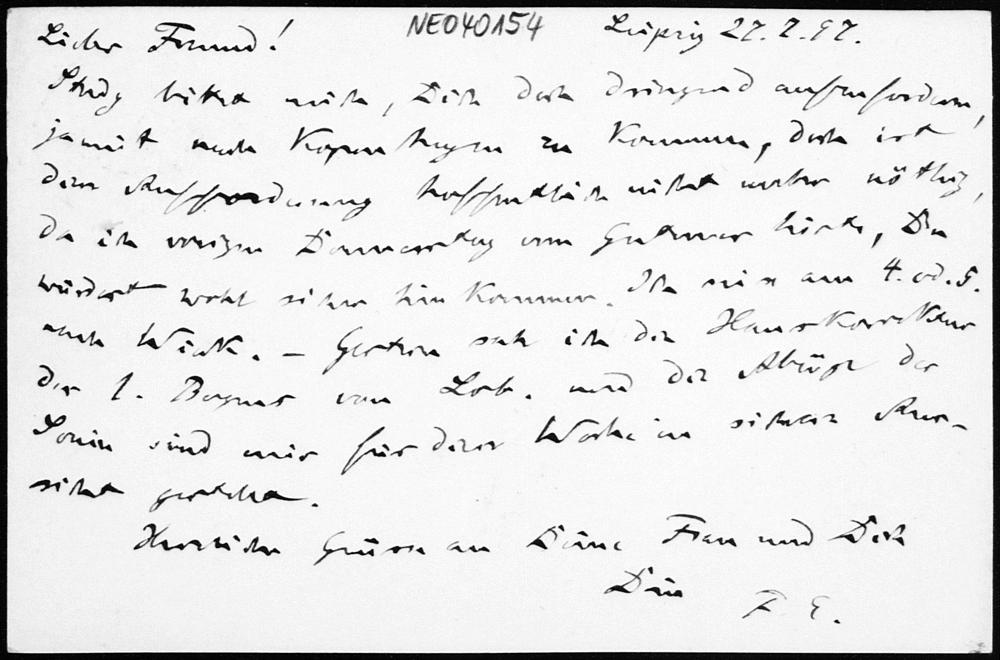 NE040154
Leipzig 27.7.97.
Lieber Freund!
Study bittet mich, Dich doch dringend aufzufordern,
ja mit nach Kopenhagen zu kommen, doch ist
diese Aufforderung hoffentlich nicht mehr nöthig,
da ich vorigen Donnerstag von Gutzmer hörte, Du
würdest wohl sicher hin kommen. Ich reise am 4. od. 5.
nach Wiek. – Gestern sah ich die Hauskorrektur
des 1. Bogens von Lob. und die Abzüge der
Serien sind mir für diese Woche in sichere Aus-
sicht gestellt.
Herzliche Grüsse an Deine Frau und Dich
Dein
F. E.